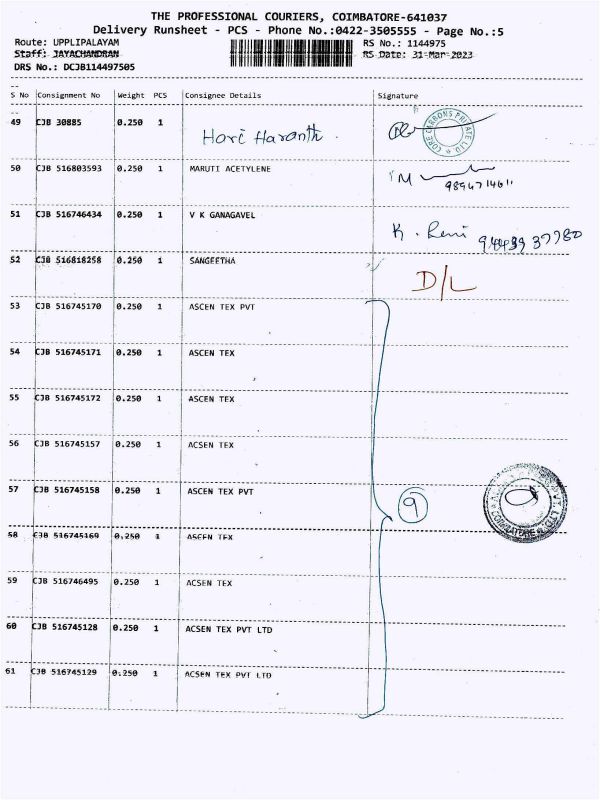 THE PROFESSIONAL COURIERS, COIMBATORE-641037
Delivery Runsheet - PCS - Phone No.:0422-3505555 - Page No.:5
Route: UPPLIPALAYAM RS No.: 1144975
Staff: JAYACHANDRAN RS Date: 31-Mar-2023
DRS No.: DCJB114497505
S No Consignment No Weight PCS Consignee Details Signature
49 CJB 30885 0.250 1 Hari Haranth. CORE CARBONS PRIVATE LTD
50 CJB 516803593 0.250 1 MARUTI ACETYLENE
51 CJB 516746434 0.250 1 V K GANAGAVEL K. 9443937780
52 CJB 516818258 0.250 1 SANGEETHA D/L
53 CJB 516745170 0.250 1 ASCEN TEX PVT
54 CJB 516745171 0.250 1 ASCEN TEX
55 CJB 516745172 0.250 1 ASCEN TEX
56 CJB 516745157 0.250 1 ACSEN TEX
57 CJB 516745158 0.250 1 ASCEN TEX PVT 9 COIMBATORE
58 CJB 516745169 0.250 1 ASCEN TEX
59 CJB 516746495 0.250 1 ACSEN TEX
60 CJB 516745128 0.250 1 ACSEN TEX PVT LTD
61 CJB 516745129 0.250 1 ACSEN TEX PVT LTD